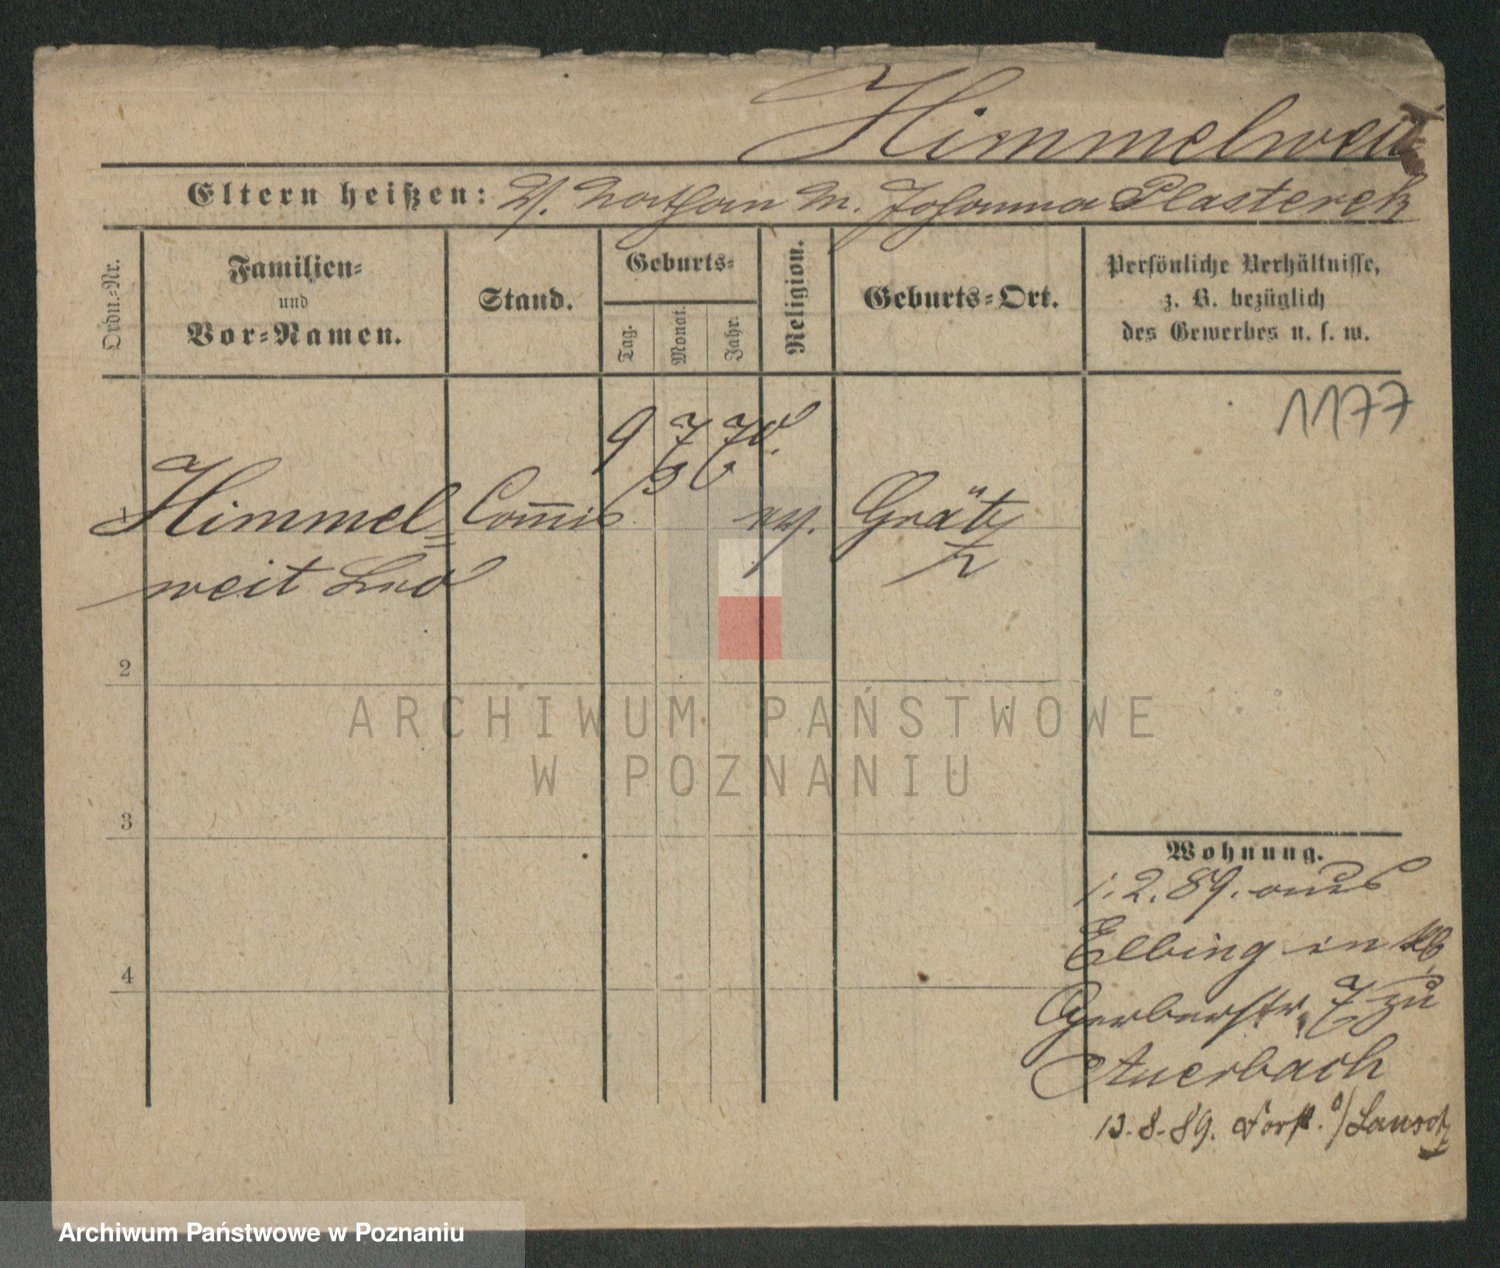 Himmelweit
Eltern heißen: V. Nathan M. Johanna Plasterek
Ordn.-Nr.
Familien-
und
Vor-Namen.
Stand.
Geburts-
Tag.
Monat.
Jahr.
Religion.
Geburts-Ort.
Persönliche Verhältnisse,
z. B. bezüglich
des Gewerbes u. s. w.
1177
9 7 70.
1 Himmel= Com̅is Grätz
weit Leo
2
3
4
Wohnung.
1.2.89. aus
Elbing in
Gerberstr. 7 zu
Auerbach
13.8.89. Forst /Lausitz
ARCHIWUM PAŃSTWOWE
W POZNANIU
Archiwum Państwowe w Poznaniu